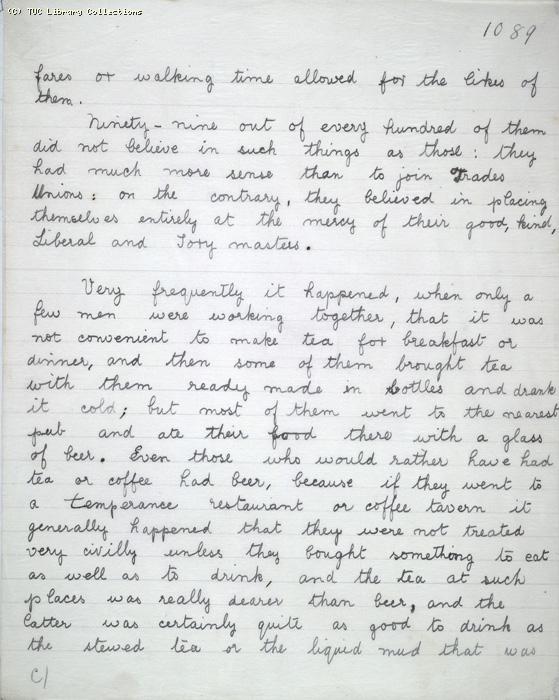 (C) TUC Library Collections
1089
fares or walking time allowed for the likes of
them.
Ninety-nine out of every hundred of them
did not believe in such things as those: they
had much more sense than to join Trades
Unions: on the contrary, they believed in placing
themselves entirely at the mercy of their good, kind,
Liberal and Tory masters.
Very frequently it happened, when only a
few men were working together, that it was
not convenient to make tea for breakfast or
dinner, and then some of them brought tea
with them ready made in bottles and drank
it cold; but most of them went to the nearest
pub and ate their food there with a glass
of beer. Even those who would rather have had
tea or coffee had beer, because if they went to
a temperance restaurant or coffee tavern it
generally happened that they were not treated
very civilly unless they bought something to eat
as well as to drink, and the tea at such
places was really dearer than beer, and the
latter was certainly quite as good to drink as
the stewed tea or the liquid mud that was
C/